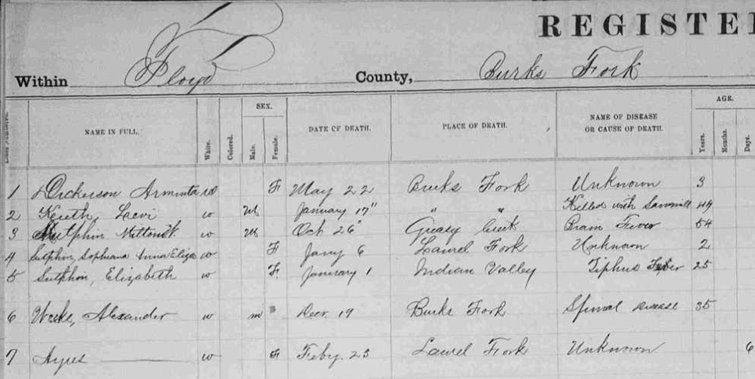 REGISTE
Within Floyd County, Burks Fork
NAME IN FULL. White. Colored. SEX. Male. Female. DATE OF DEATH. PLACE OF DEATH. NAME OF DISEASE OR CAUSE OF DEATH. AGE. Years. Months. Days.
1 Dickerson Arminta w F May 22 Burks Fork Unknown 3
2 Keith, Levi w M January 17" " " Killed with Sawmill 49
3 Sutphin w M Oct 26 Greasy Creek Fever 54
4 Sutphin, Sophrana Anna Eliza w F Jany 6 Laurel Fork Unknown 2
5 Sutphin, Elizabeth w F January 1 Indian Valley Tiphus Fever 25
6 Weeks, Alexander w m Decr 19 Burks Fork Spinal disease 35
7 Ayres w F Feby 23 Laurel Fork Unknown 6